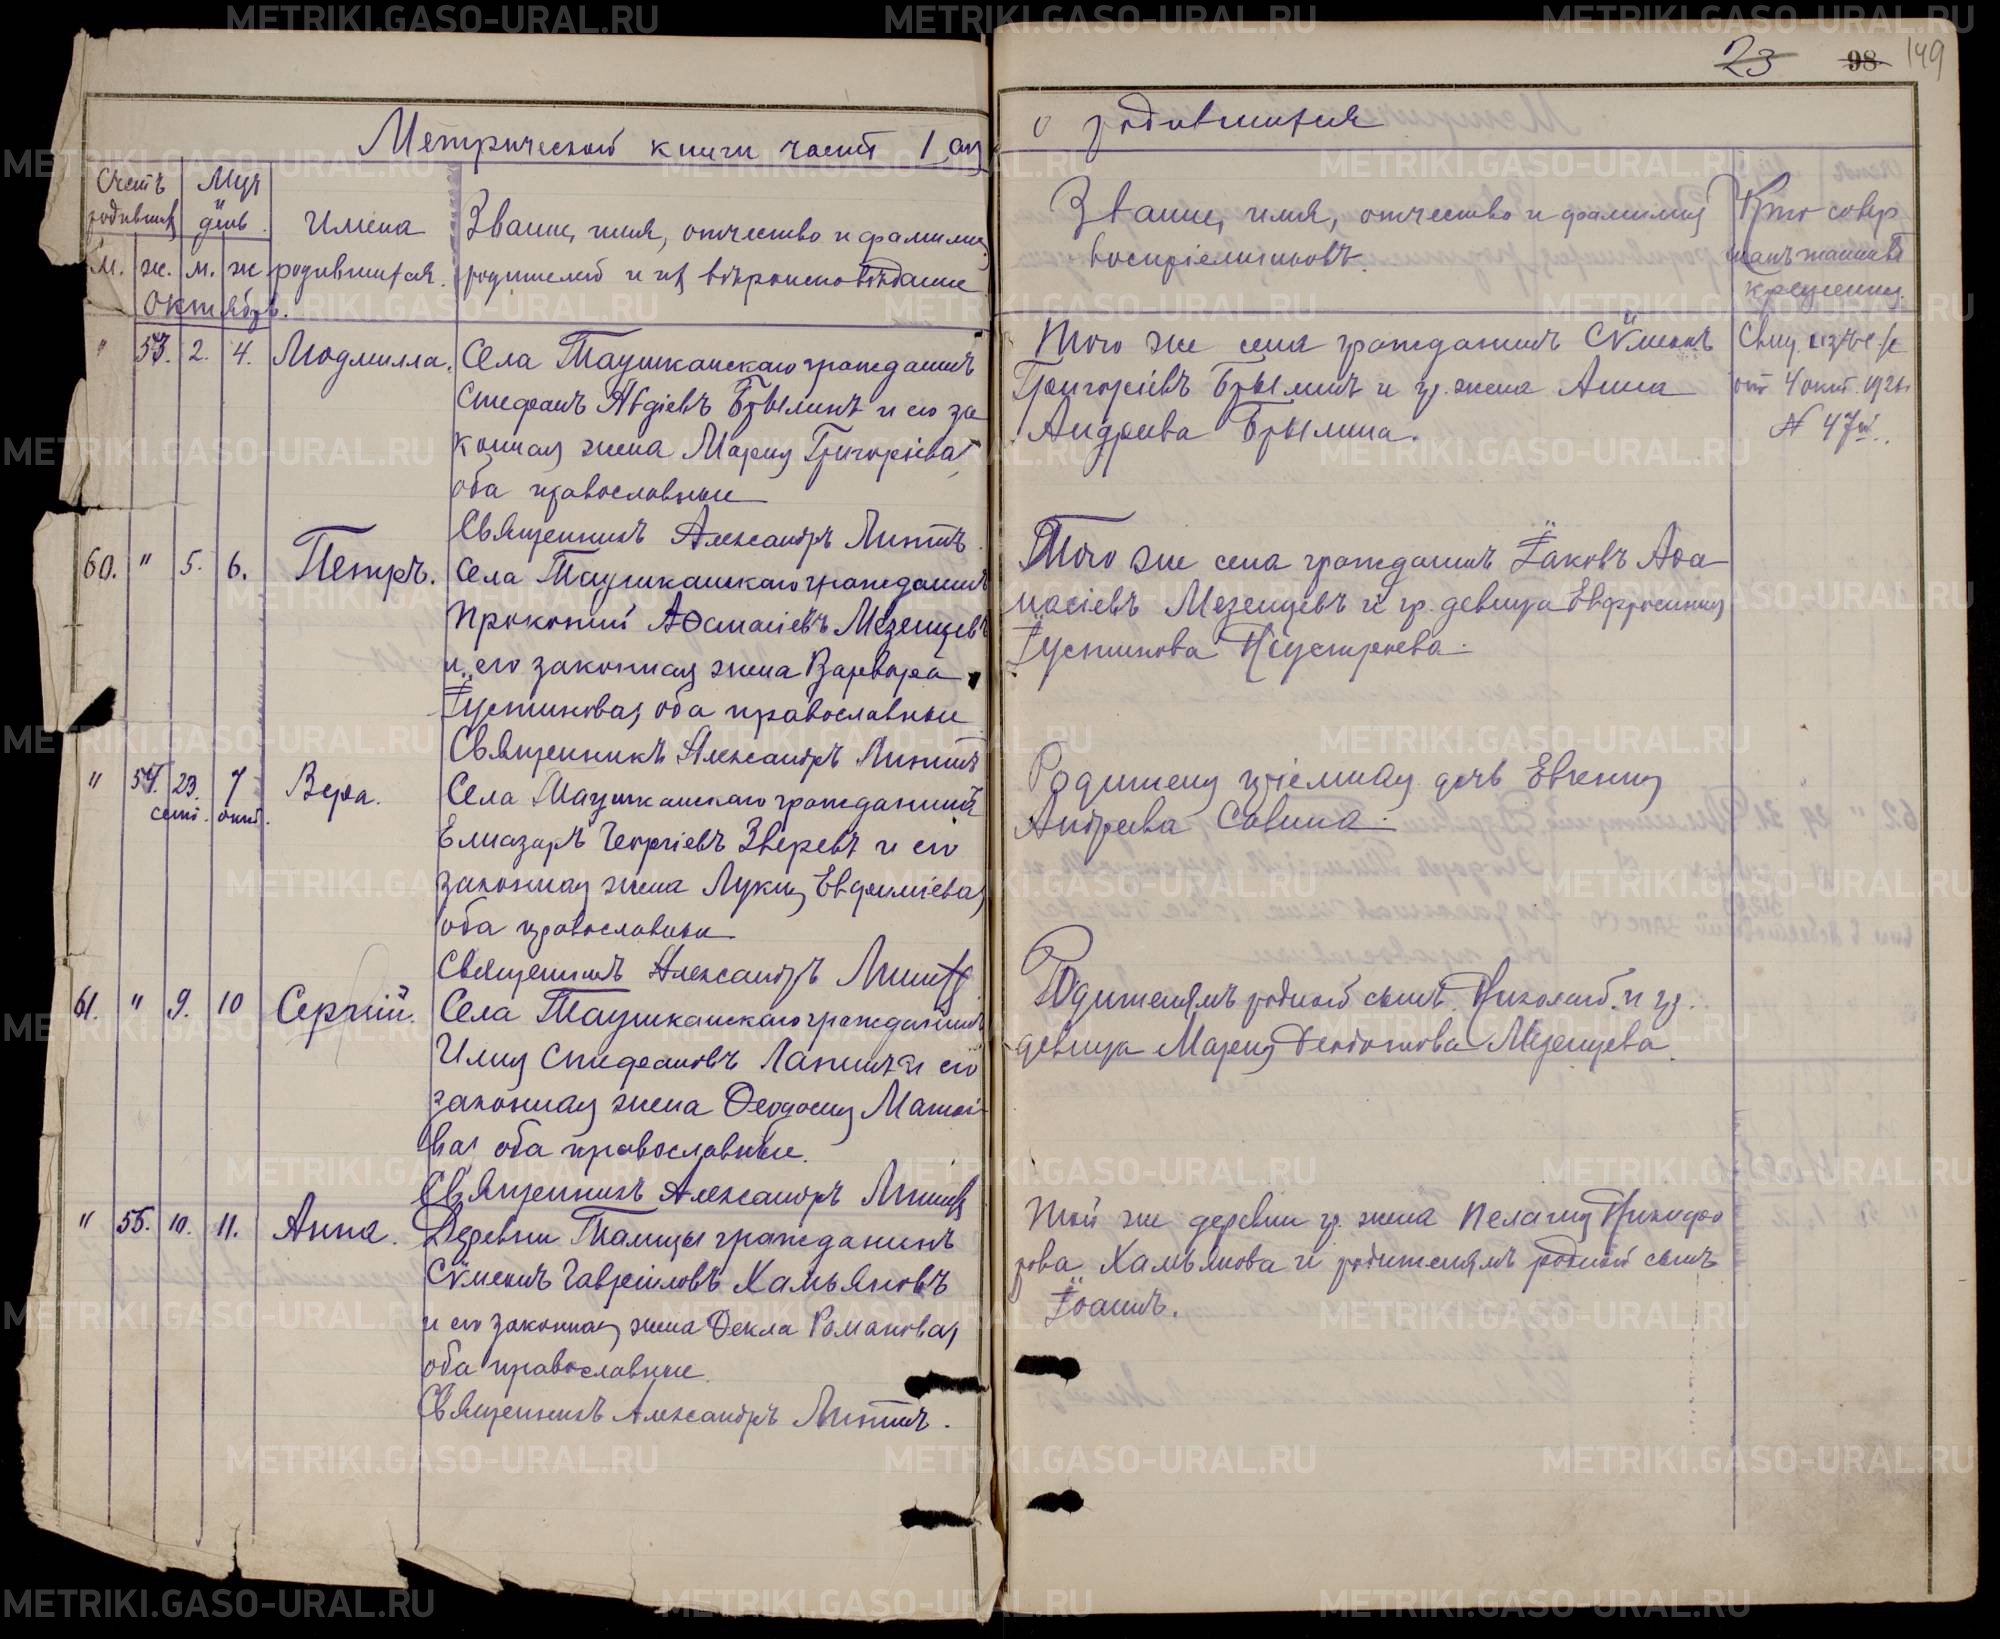 23 98 149
Метрической книги часть 1ая
о родившихся
Счетъ родивших
Мцъ и день
Имена родившихся.
Званіе, имя, отчество и фамилия родителей и их вѣроисповѣдание
Званіе, имя, отчество и фамилия воспріемниковъ.
Кто совершалъ таинств крещения.
м. ж. м. ж
Октября.
" 53. 2. 4. Людмилла.
Села Таушканскаго гражданинъ
Стефанъ Авдіевъ Брылинъ и его за
конная жена Мария Григорьева,
оба православные
Священникъ Александръ
Того же села гражданинъ Сѵмеонъ
Григоріевъ Брылинъ и гр. жена Анна
Андреева Брылина.
от 4 окт. 192
N 47
60. " 5. 6. Петръ.
Села Таушканскаго гражданинъ
Прокопий Аѳанасіевъ Мезенцевъ
и его законная жена Варвара
Іустинова, оба православные
Священникъ Александръ
Того же села гражданинъ Іаковъ Аѳа
насіевъ Мезенцевъ и гр. девица Евфросиния
Іустинова
" 54. 23. сент. 7 окт. Вера.
Села Таушканскаго гражданинъ
Елиазаръ Георгіевъ Зверевъ и его
законная жена Лукия Евфиміева,
оба православные
Священникъ Александръ
Родителей пріемная дочь Евгения
Андреева Савина.
61. " 9. 10 Сергий.
Села Таушканскаго гражданинъ
Илия Стефановъ Лапинъ и его
законная жена Ѳеодосия Матѳі-
ва, оба православные.
Священникъ Александръ
Родителямъ родной сынъ Николай и гр.
девица Мария Ѳеодотова Мезенцева.
" 55. 10. 11. Анна.
Деревни Талицы гражданинъ
Сѵмеонъ Гавріиловъ Хамьяновъ
и его законная жена Ѳекла Романова,
оба православные.
Священникъ Александръ
Той же деревни гр. жена Пелагия Никифо
рова Хамьянова и родителямъ родной сынъ
Іоаннъ.
METRIKI.GASO-URAL.RU